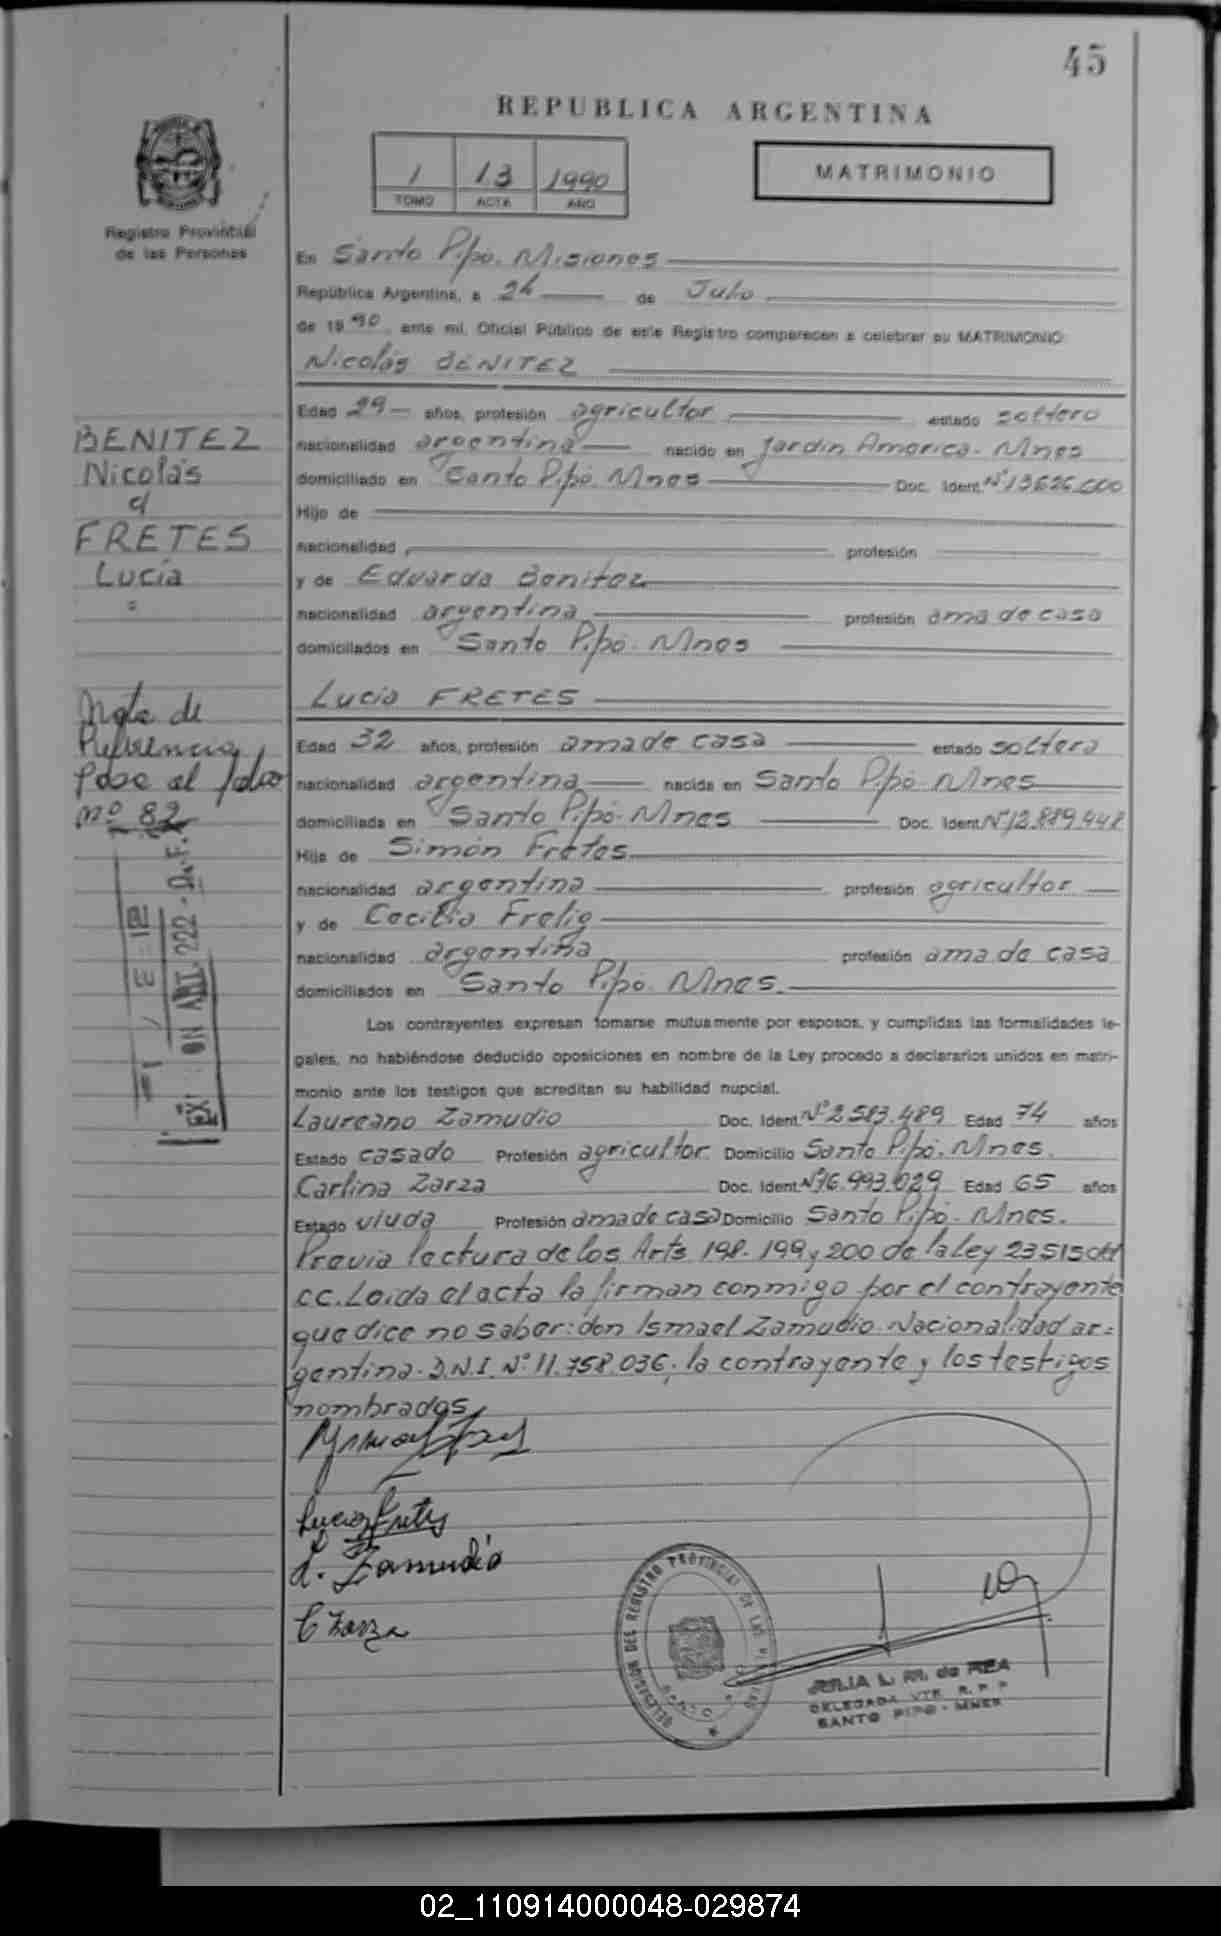 45
REPUBLICA ARGENTINA
1 13 1990
TOMO ACTA AÑO
MATRIMONIO
Registro Provincial
de las Personas
En Santo Pipó. Misiones
República Argentina, a 24 de Julio
de 1990, ante mí, Oficial Público de este Registro comparecen a celebrar su MATRIMONIO:
Nicolás BENITEZ
Edad 29 años, profesión agricultor estado soltero
nacionalidad argentina nacido en Jardín América. Mnes
domiciliado en Santo Pipó. Mnes Doc. Ident. Nº 13.626.600
Hijo de
nacionalidad profesión
y de Eduarda Benitez
nacionalidad argentina profesión ama de casa
domiciliados en Santo Pipó. Mnes
Lucía FRETES
Edad 32 años, profesión ama de casa estado soltera
nacionalidad argentina nacida en Santo Pipó. Mnes
domiciliada en Santo Pipó. Mnes Doc. Ident. Nº 12.889.448
Hija de Simón Fretes
nacionalidad argentina profesión agricultor
y de Cecilia Frelig
nacionalidad argentina profesión ama de casa
domiciliados en Santo Pipó. Mnes.
Los contrayentes expresan tomarse mutuamente por esposos, y cumplidas las formalidades le-
gales, no habiéndose deducido oposiciones en nombre de la Ley procedo a declararlos unidos en matri-
monio ante los testigos que acreditan su habilidad nupcial.
Laureano Zamudio Doc. Ident. Nº 2.583.489 Edad 74 años
Estado casado Profesión agricultor Domicilio Santo Pipó. Mnes.
Carlina Zarza Doc. Ident. Nº 6.993.029 Edad 65 años
Estado viuda Profesión ama de casa Domicilio Santo Pipó. Mnes.
Previa lectura de los Arts 198. 199 y 200 de la Ley 23515 del
cc. Leída el acta la firman conmigo por el contrayente
que dice no saber: don Ismael Zamudio. Nacionalidad ar=
gentina. D.N.I. Nº 11.758.036, la contrayente y los testigos
nombrados
Lucia Fretes
L. Zamudio
C Zarza
BENITEZ
Nicolás
c/
FRETES
Lucía
Nota de
Referencia
Pase al folio
nº 82
ON ART. 222 - D.F.
DELEGACION DEL REGISTRO PROVINCIAL DE LAS PERSONAS
JULIA L. M. de REA
DELEGADA VTE R. P. P
SANTO PIPO - MNES
02_110914000048-029874